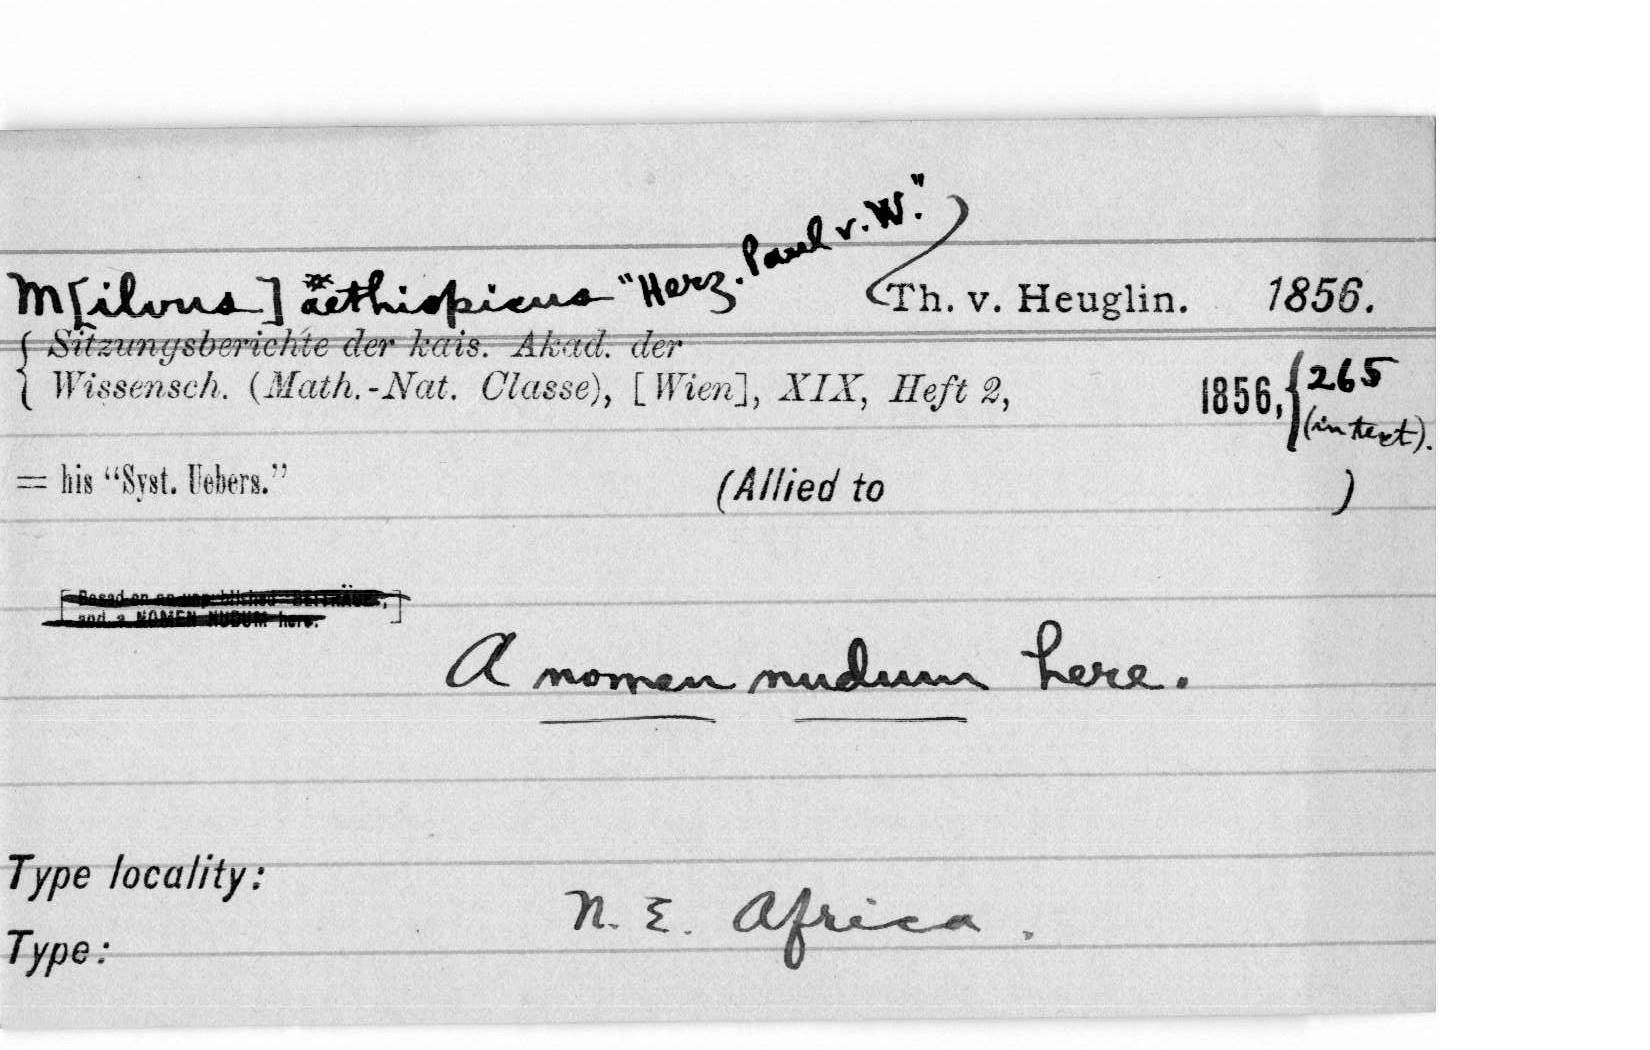 M[ilvus] aethiopicus "Herz. Paul v. W." (Th. v. Heuglin. 1856.
{ Sitzungsberichte der kais. Akad. der
Wissensch. (Math.-Nat. Classe), [Wien], XIX, Heft 2, 1856, { 265
(in text).
= his “Syst. Uebers.” (Allied to )
[Based on an unpublished "BEITRÄGE",
and a NOMEN NUDUM here.]
A nomen nudum here.
Type locality:
N. E. Africa.
Type: